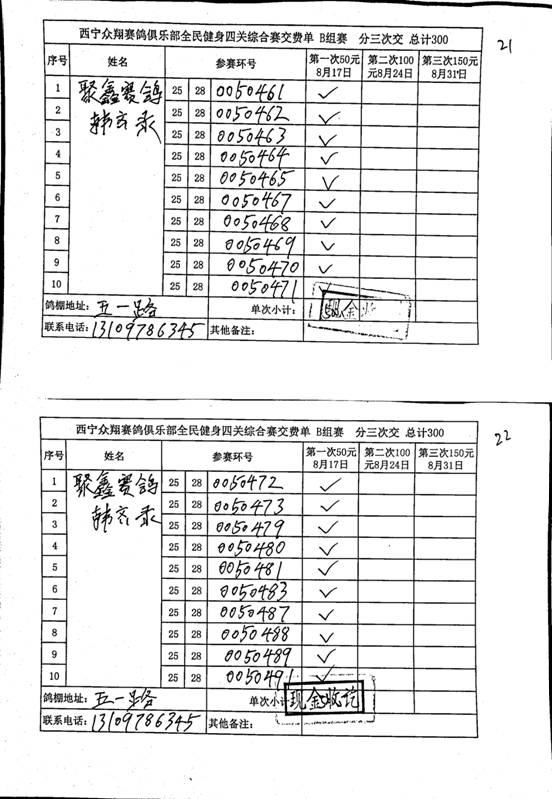 西宁众翔赛鸽俱乐部全民健身四关综合赛交费单 B组赛 分三次交 总计300
21
序号 姓名 参赛环号 第一次50元8月17日 第二次100元8月24日 第三次150元8月31日
聚鑫赛鸽
韩齐录
1 25 28 0050461 ✓
2 25 28 0050462 ✓
3 25 28 0050463 ✓
4 25 28 0050464 ✓
5 25 28 0050465 ✓
6 25 28 0050467 ✓
7 25 28 0050468 ✓
8 25 28 0050469 ✓
9 25 28 0050470 ✓
10 25 28 0050471 ✓
鸽棚地址: 五一路 单次小计: 现金收
联系电话: 13109786345 其他备注:
西宁众翔赛鸽俱乐部全民健身四关综合赛交费单 B组赛 分三次交 总计300
22
序号 姓名 参赛环号 第一次50元8月17日 第二次100元8月24日 第三次150元8月31日
聚鑫赛鸽
韩齐录
1 25 28 0050472 ✓
2 25 28 0050473 ✓
3 25 28 0050479 ✓
4 25 28 0050480 ✓
5 25 28 0050481 ✓
6 25 28 0050483 ✓
7 25 28 0050487 ✓
8 25 28 0050488 ✓
9 25 28 0050489 ✓
10 25 28 0050491 ✓
鸽棚地址: 五一路 单次小计 现金收讫
联系电话: 13109786345 其他备注: